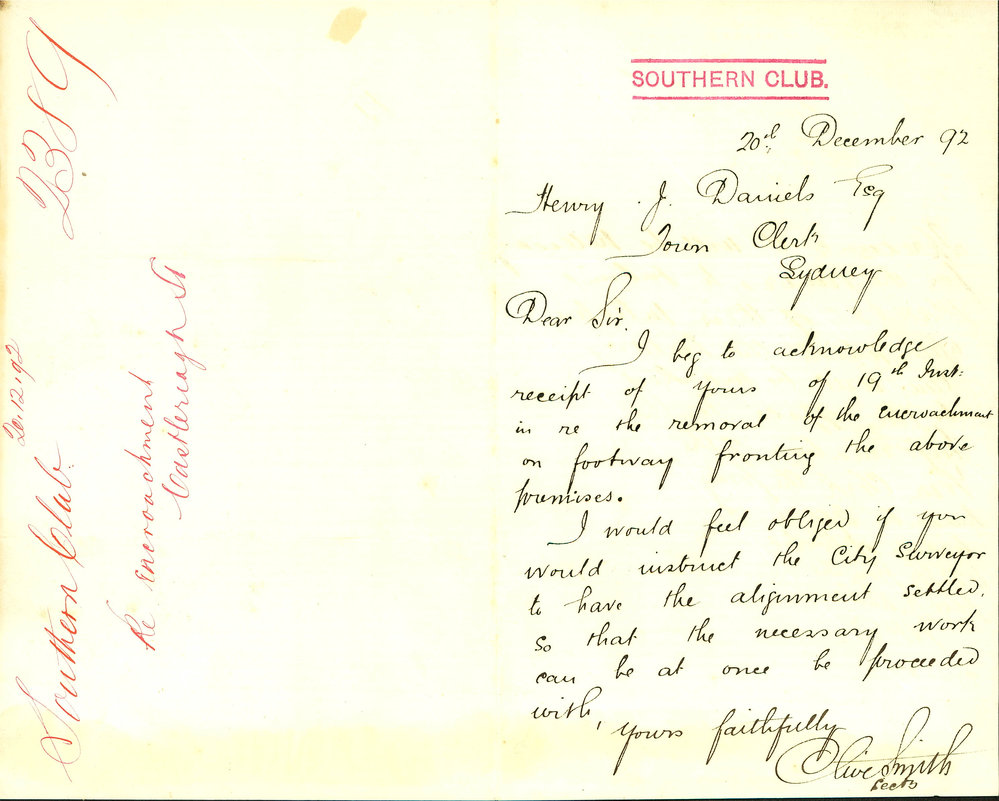 SOUTHERN CLUB.
20th December 92
Henry J. Daniels Esq
Town Clerk
Sydney
Dear Sir.
I beg to acknowledge
receipt of yours of 19th Inst:
in re the removal of the encroachment
on footway fronting the above
premises.
I would feel obliged if you
would instruct the City Surveyor
to have the alignment settled.
so that the necessary work
can be at once be proceeded
with,
yours faithfully
Clive Smith
Secty
2389
20.12.92
Southern Club.
Re encroachment
Castlereagh St